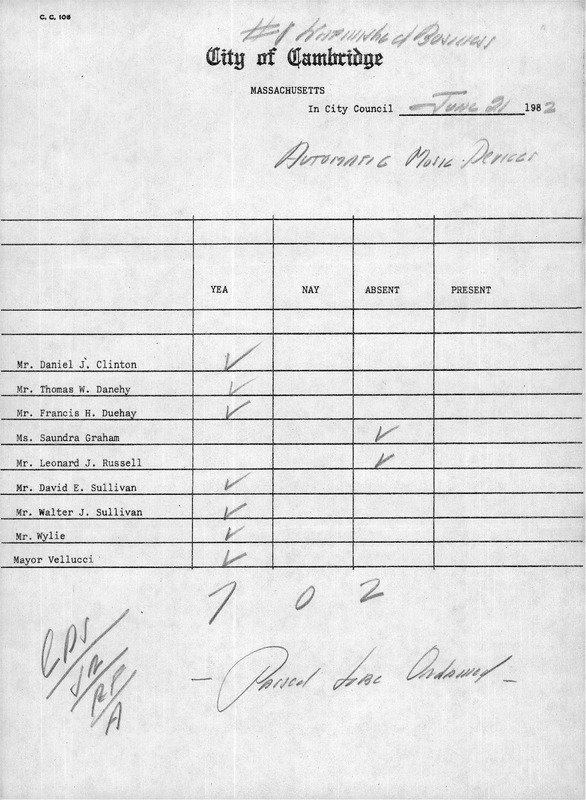 C. C. 106
#1 Unfinished Business
City of Cambridge
MASSACHUSETTS
In City Council June 21 1982
Automatic Music Devices
YEA NAY ABSENT PRESENT
Mr. Daniel J. Clinton ✓
Mr. Thomas W. Danehy ✓
Mr. Francis H. Duehay ✓
Ms. Saundra Graham ✓
Mr. Leonard J. Russell ✓
Mr. David E. Sullivan ✓
Mr. Walter J. Sullivan ✓
Mr. Wylie ✓
Mayor Vellucci ✓
7 0 2
- Passed to be Ordained -
JR
RP
A